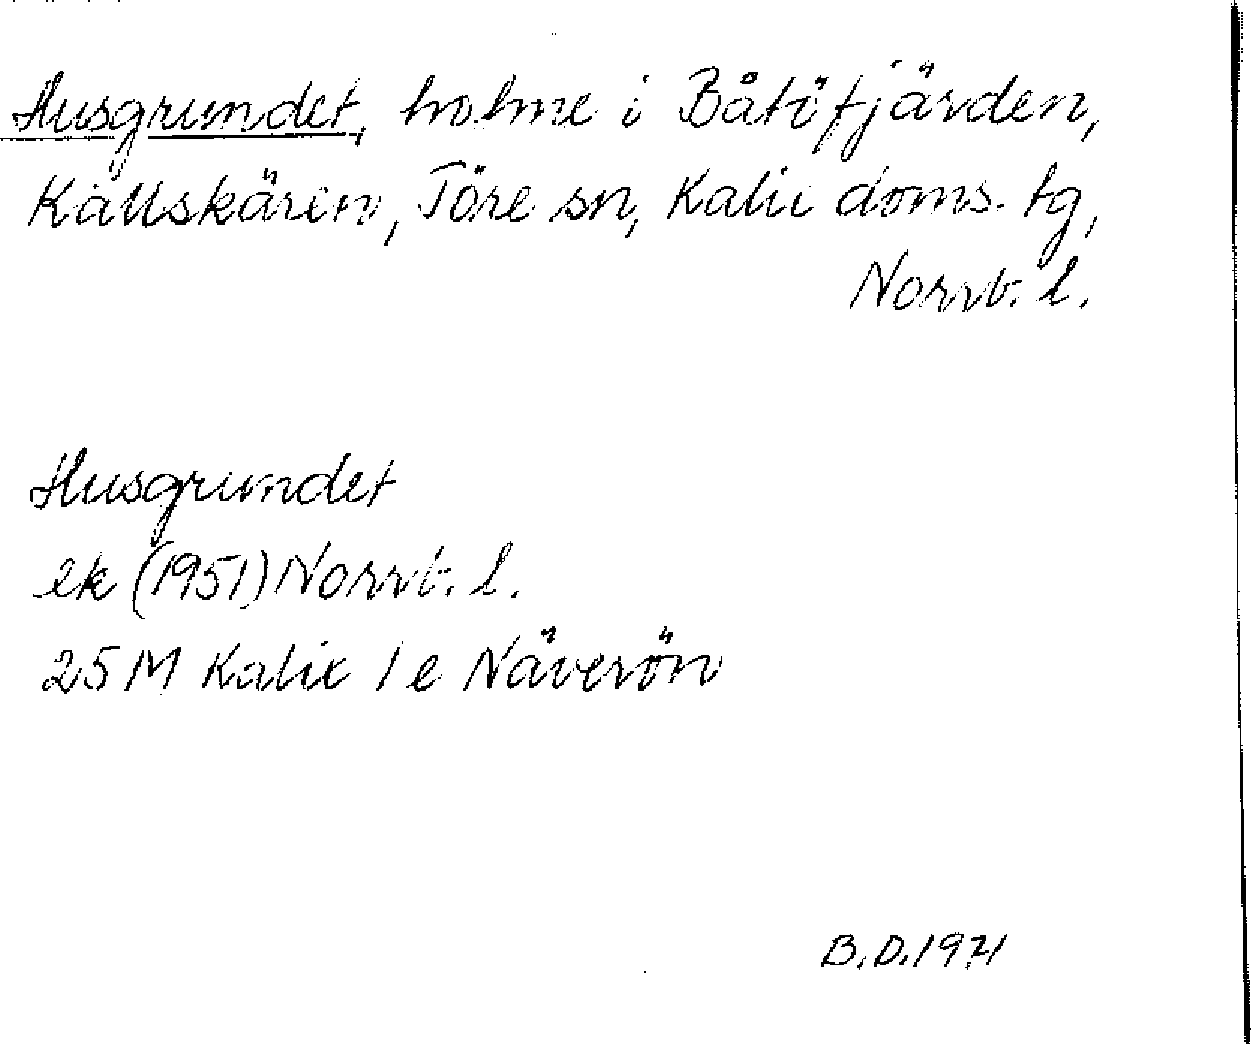 Husgrundet, holme i Båtöfjärden,
Källskären, Töre sn, Kalix doms. tg,
Norrb. l.
Husgrundet
ek (1951) Norrb. l.
25 M Kalix 1 e Näverön
B.D. 1971